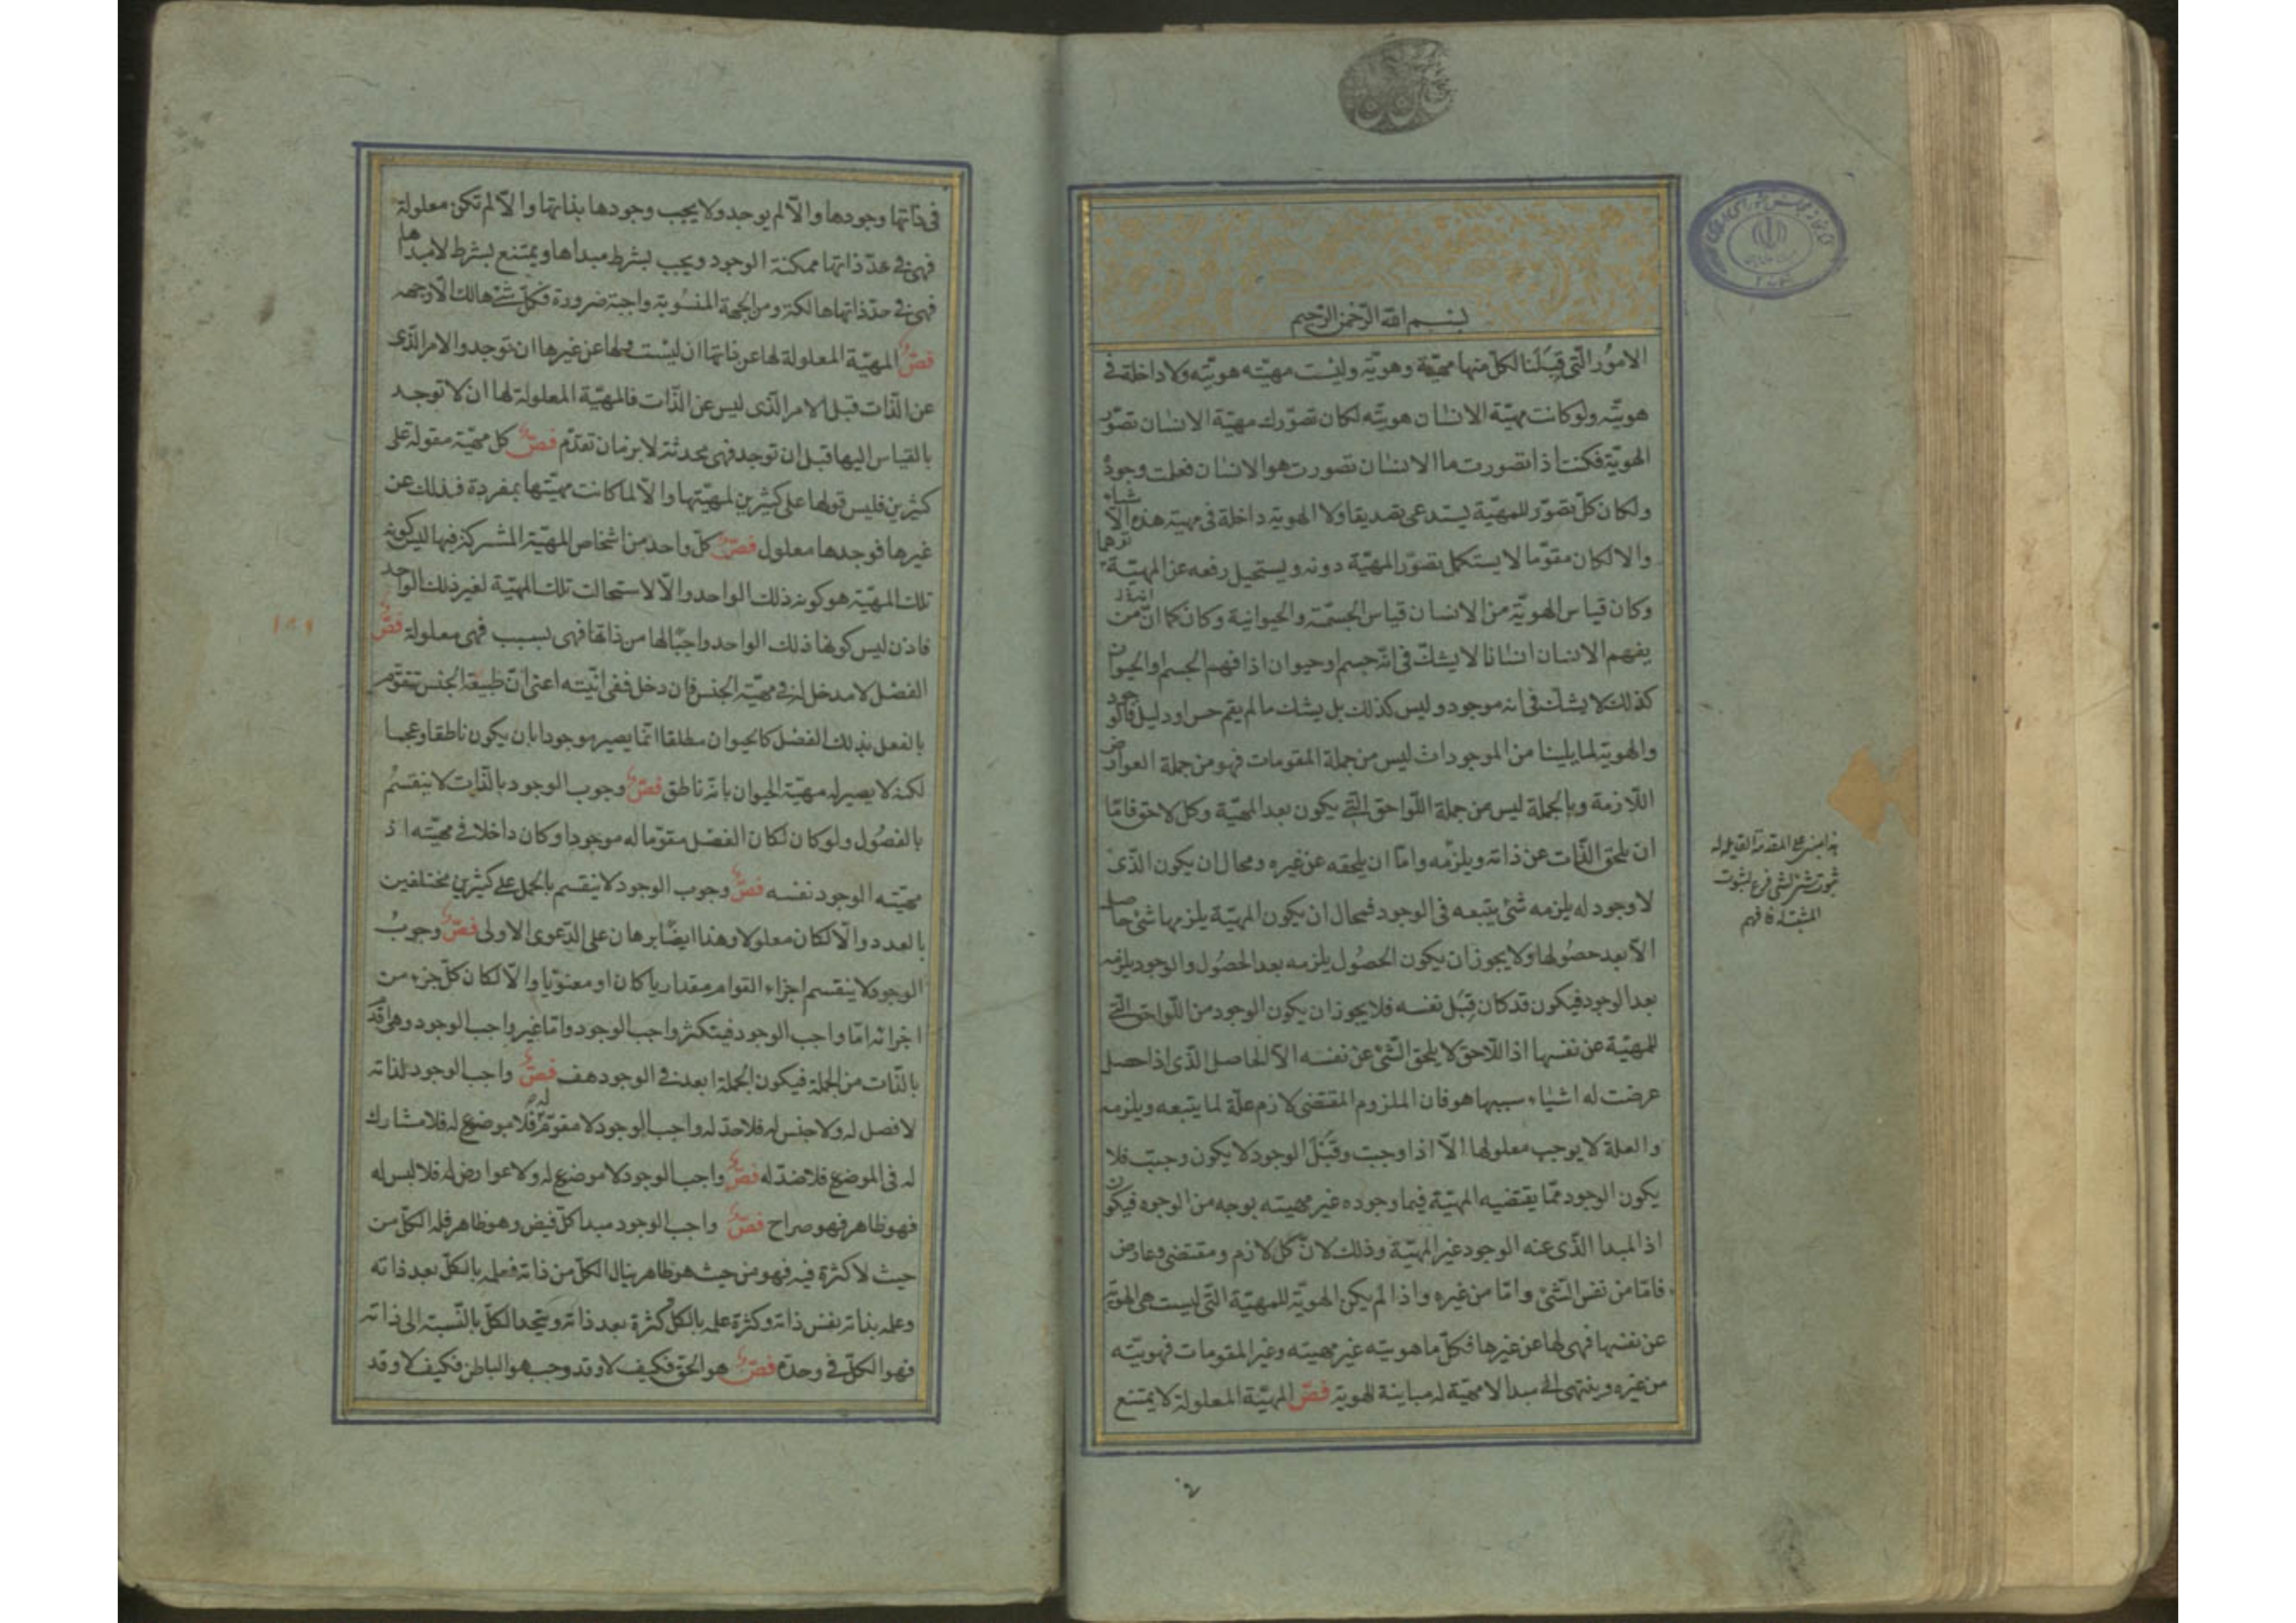 بسم الله الرحمن الرحیم
الامور التی قبلنا لکل منها مهیّة وهویّة ولیست مهیّته هویّته ولا داخلة فی
هویّته ولو کانت مهیّة الانسان هویّته لکان تصوّرک مهیّة الانسان تصوّر
الهویّة فکنت اذا تصورت ما الانسان تصورت هو الانسان فعلمت وجوده
ولکان کلّ تصوّر للمهیّة یستدعی تصدیقا ولا الهویّة داخلة فی مهیّة هذه الاشیاء
والا لکان مقوّما لا یستکمل تصوّر المهیّة دونه ویستحیل رفعه عن المهیّة توهما
وکان قیاس الهویّة من الانسان قیاس الجسمیّة والحیوانیة وکان کما انّ من
یفهم الانسان انسانا لا یشکّ فی انّه جسم او حیوان اذا فهم الجسم او الحیوان
کذلک لا یشکّ فی انه موجود ولیس کذلک بل یشک ما لم یقم حس او دلیل فالوجود
والهویّة لما یلینا من الموجودات لیس من جملة المقومات فهو من جملة العوارض
اللّازمة وبالجملة لیس من جملة اللّواحق التی یکون بعد المهیّة وکل لاحق فامّا
ان یلحق الذّات عن ذاته ویلزمه وامّا ان یلحقه عن غیره ومحال ان یکون الذّی
لا وجود له یلزمه شئ یتبعه فی الوجود فمحال ان یکون المهیّة یلزمها شئ حاصل
الّا بعد حصولها ولا یجوز ان یکون الحصول یلزمه بعد الحصول والوجود یلزمه
بعد الوجود فیکون قد کان قبل نفسه فلا یجوز ان یکون الوجود من اللّواحق التی
للمهیّة عن نفسها اذ اللّاحق لا یلحق الشّئ عن نفسه الّا الحاصل الذّی اذا حصل
عرضت له اشیاء سببها هو فان الملزوم المقتضی لازم علّة لما یتبعه ویلزمه
والعلة لا یوجب معلولها الّا اذا وجبت وقبل الوجود لا یکون وجبت فلا
یکون الوجود ممّا یقتضیه المهیّة فیما وجوده غیر مهیته بوجه من الوجوه فیکون
اذ المبدا الذّی عنه الوجود غیر المهیّة وذلک لانّ کل لازم ومقتضی وعارض
فامّا من نفس الشّئ وامّا من غیره واذا لم یکن الهویّة للمهیّة التی لیست هی الهویّة
عن نفسها فهی لها عن غیرها فکلّ ما هویته غیر مهیته وغیر المقومات فهویّته
من غیره وینتهی الی مبدا لا مهیّة له مباینة للهویة فصّ المهیّة المعلولة لا یمتنع
المقدمة القایله
ثبوت شئ لشئ فرع لثبوت
المثبت له فافهم
فی ذاتها وجودها والّا لم یوجد ولا یجب وجودها بذاتها والّا لم تکن معلولة
فهی فی حدّ ذاتها ممکنة الوجود ویجب بشرط مبداها ویمتنع بشرط لا مبداها
فهی فی حدّ ذاتها هالکة ومن الجهة المنسوبة واجبة ضرورة فکلّ شئ هالک الّا وجهه
فصّ المهیّة المعلولة لها عن ذاتها ان لیست ولها عن غیرها ان توجد والامر الذّی
عن الذّات قبل الامر الذّی لیس عن الذّات فالمهیّة المعلولة لها ان لا توجد
بالقیاس الیها قبل ان توجد فهی محدثة لا بزمان تقدّم فصّ کل مهیّة مقولة علی
کثیرین فلیس قولها علی کثیرین لمهیّتها والّا لما کانت مهیّتها بمفردة فذلک عن
غیرها فوجدها معلول فصّ کلّ واحد من اشخاص المهیّة المشترکة فیها لیس کونه
تلک المهیّة هو کونه ذلک الواحد والّا لاستحالت تلک المهیّة لغیر ذلک الواحد
فاذن لیس کونها ذلک الواحد واجبًا لها من ذاتها فهی بسبب فهی معلولة فصّ
الفصل لا مدخل له فی مهیّة الجنس فان دخل ففی انّیته اعنی انّ طبیعة الجنس تتقوّم
بالفعل بذلک الفصل کالحیوان مطلقا انّما یصیر موجودا بان یکون ناطقا وعجما
لکنه لا یصیر له مهیّة الحیوان بانّه ناطق فصّ وجوب الوجود بالذّات لا ینقسم
بالفصول ولو کان لکان الفصل مقوّما له موجودا وکان داخلا فی مهیّته اذ
مهیّته الوجود نفسه فصّ وجوب الوجود لا ینقسم بالحمل علی کثیرین مختلفین
بالعدد والّا لکان معلولا وهذا ایضًا برهان علی الدّعوی الاولی فصّ وجوب
الوجود لا ینقسم اجزاء القوام مقداریا کان او معنویّا والّا لکان کلّ جزء من
اجزائه امّا واجب الوجود فیتکثر واجب الوجود وامّا غیر واجب الوجود وهی اقدم
بالذّات من الجملة فیکون الجملة ابعد فی الوجود هف فصّ واجب الوجود لذاته
لا فصل له ولا جنس له فلا حدّ له واجب الوجود لا مقوّم له فلا موضوع له فلا مشارک
له فی الموضع فلا ضدّ له فصّ واجب الوجود لا موضع له ولا عوارض له فلا لبس له
فهو ظاهر فهو صراح فصّ واجب الوجود مبدا کلّ فیض وهو ظاهر فله الکلّ من
حیث لا کثرة فیه فهو من حیث هو ظاهر ینال الکلّ من ذاته فعلمه بالکلّ بعد ذاته
وعلمه بذاته نفس ذاته وکثرة علمه بالکل کثرة بعد ذاته ویتحد الکلّ بالنّسبة الی ذاته
فهو الکلّ فی وحدة فصّ هو الحق فکیف لا وقد وجب هو الباطن فکیف لا وقد